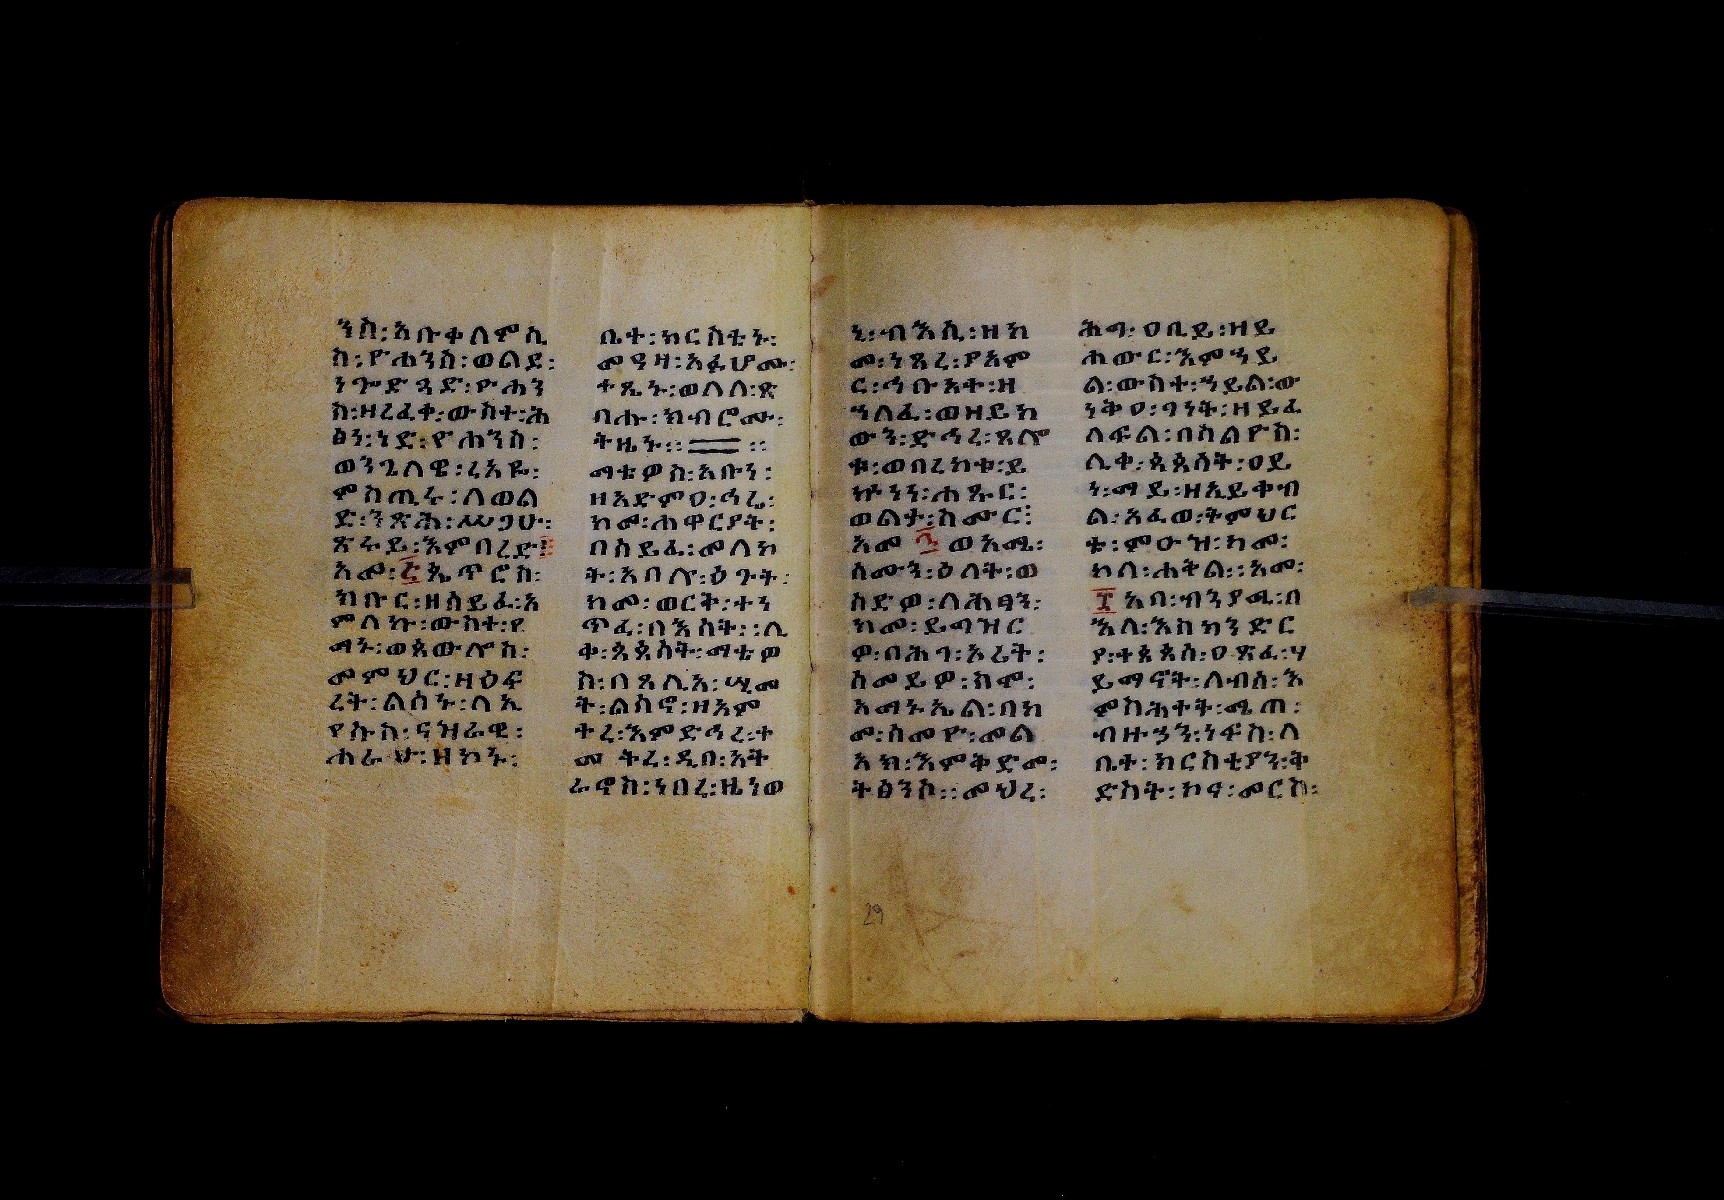 ንስ፡አቡቀለምሲ
ስ፡ዮሐንስ፡ወልደ፡
ንጐድጓድ፡ዮሐን
ስ፡ዘረፈቀ፡ውስተ፡ሕ
ፅን፡ነድ፡ዮሐንስ፡
ወንጌላዊ፡ረአዬ፡
ምስጢሩ፡ለወል
ድ፡ንጽሕ፡ሥጋሁ፡
ጽሩይ፡እምበረድ፡
አመ፡፭ጴጥሮስ፡
ክቡር፡ዘሰይፈ፡አ
ምላኩ፡ውስተ፡የ
ማኑ፡ወጳውሎስ፡
መምህር፡ዘዕፍ
ረት፡ልሳኑ፡ለኢ
የሱስ፡ናዝራዊ፡
ሐራሁ፡ዘኮኑ፡
ቤተ፡ክርስቲኑ፡
መዓዛ፡አፉሆሙ፡
ተጼኑ፡ወለለ፡ጽ
ባሑ፡ክብሮሙ፡
ትዜኑ፡፡ ፡፡
ማቴዎስ፡አቡነ፡
ዘአድምዐ፡ኅሬ፡
ከመ፡ሐዋርያት፡
በሰይፈ፡መለኮ
ት፡አባሉ፡ዕጉት፡
ከመ፡ወርቅ፡ተነ
ጥፈ፡በእሳት፡፡ሊ
ቀ፡ጳጳሳት፡ማቴዎ
ስ፡በጸሊአ፡ሢመ
ት፡ልሳኖ፡ዘአም
ተረ፡እምድኅረ፡ተ
መትረ፡ዲበ፡አት
ራኖስ፡ነበረ፡ዜነወ
ኒ፡ብእሲ፡ዘከ
መ፡ነጸረ፡ያአም
ር፡ኅቡአተ፡ዘ
ኀለፈ፡ወዘይከ
ውን፡ድኅረ፡ጸሎ
ቱ፡ወበረከቱ፡ይ
ኵነነ፡ሐጹር፡
ወልታ፡ስሙር፡
አመ ፯ ወአሜ፡
ሰሙን፡ዕለት፡ወ
ስድዎ፡ለሕፃን፡
ከመ፡ይግዝር
ዎ፡በሕገ፡ኦሪት፡
ሰመይዎ፡ስሞ፡
አማኑኤል፡በከ
መ፡ሰመዮ፡መል
አክ፡እምቅድመ፡
ትፅንሶ፡፡መሀረ፡
ሕግ፡ዐቢይ፡ዝይ
ሐውር፡እምኀይ
ል፡ውስተ፡ኀይል፡ው
ነቅዐ፡ገነት፡ዘይፈ
ለፍል፡በሰልዮስ፡
ሊቀ፡ጳጳሳት፡ዐይ
ነ፡ማይ፡ዘኢይቀብ
ል፡አፈወ፡ትምህር
ቱ፡ምዑዝ፡ከመ፡
ኮለ፡ሐቅል፡፡አመ፡
፲ አባ፡ብንያሚ፡በ
እለ፡እስክንድር
ያ፡ተጳጳሰ፡ዐጽፈ፡ሃ
ይማኖት፡ለብሰ፡እ
ምስሕተት፡ሜጠ፡
ብዙኃን፡ነፍሰ፡ለ
ቤተ፡ክርስቲያን፡ቅ
ድስት፡ኮና፡መርሰ፡
29